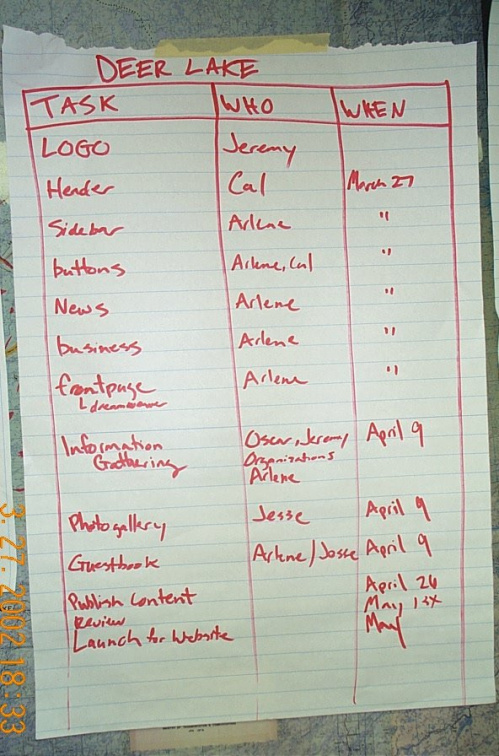 DEER LAKE
TASK WHO WHEN
LOGO Jeremy
Header Cal March 27
Sidebar Arlene "
buttons Arlene, Cal "
News Arlene "
business Arlene "
frontpage Arlene "
L dreamweaver
Information Oscar, Jeremy April 9
Gathering Organizations
Arlene
Photogallery Jesse April 9
Guestbook Arlene/Jesse April 9
Publish Content April 26
Review May 1st
Launch for Website May
3.27.2002 18:33